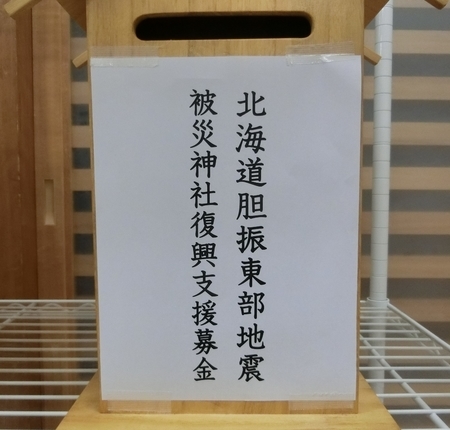 北海道胆振東部地震
被災神社復興支援募金